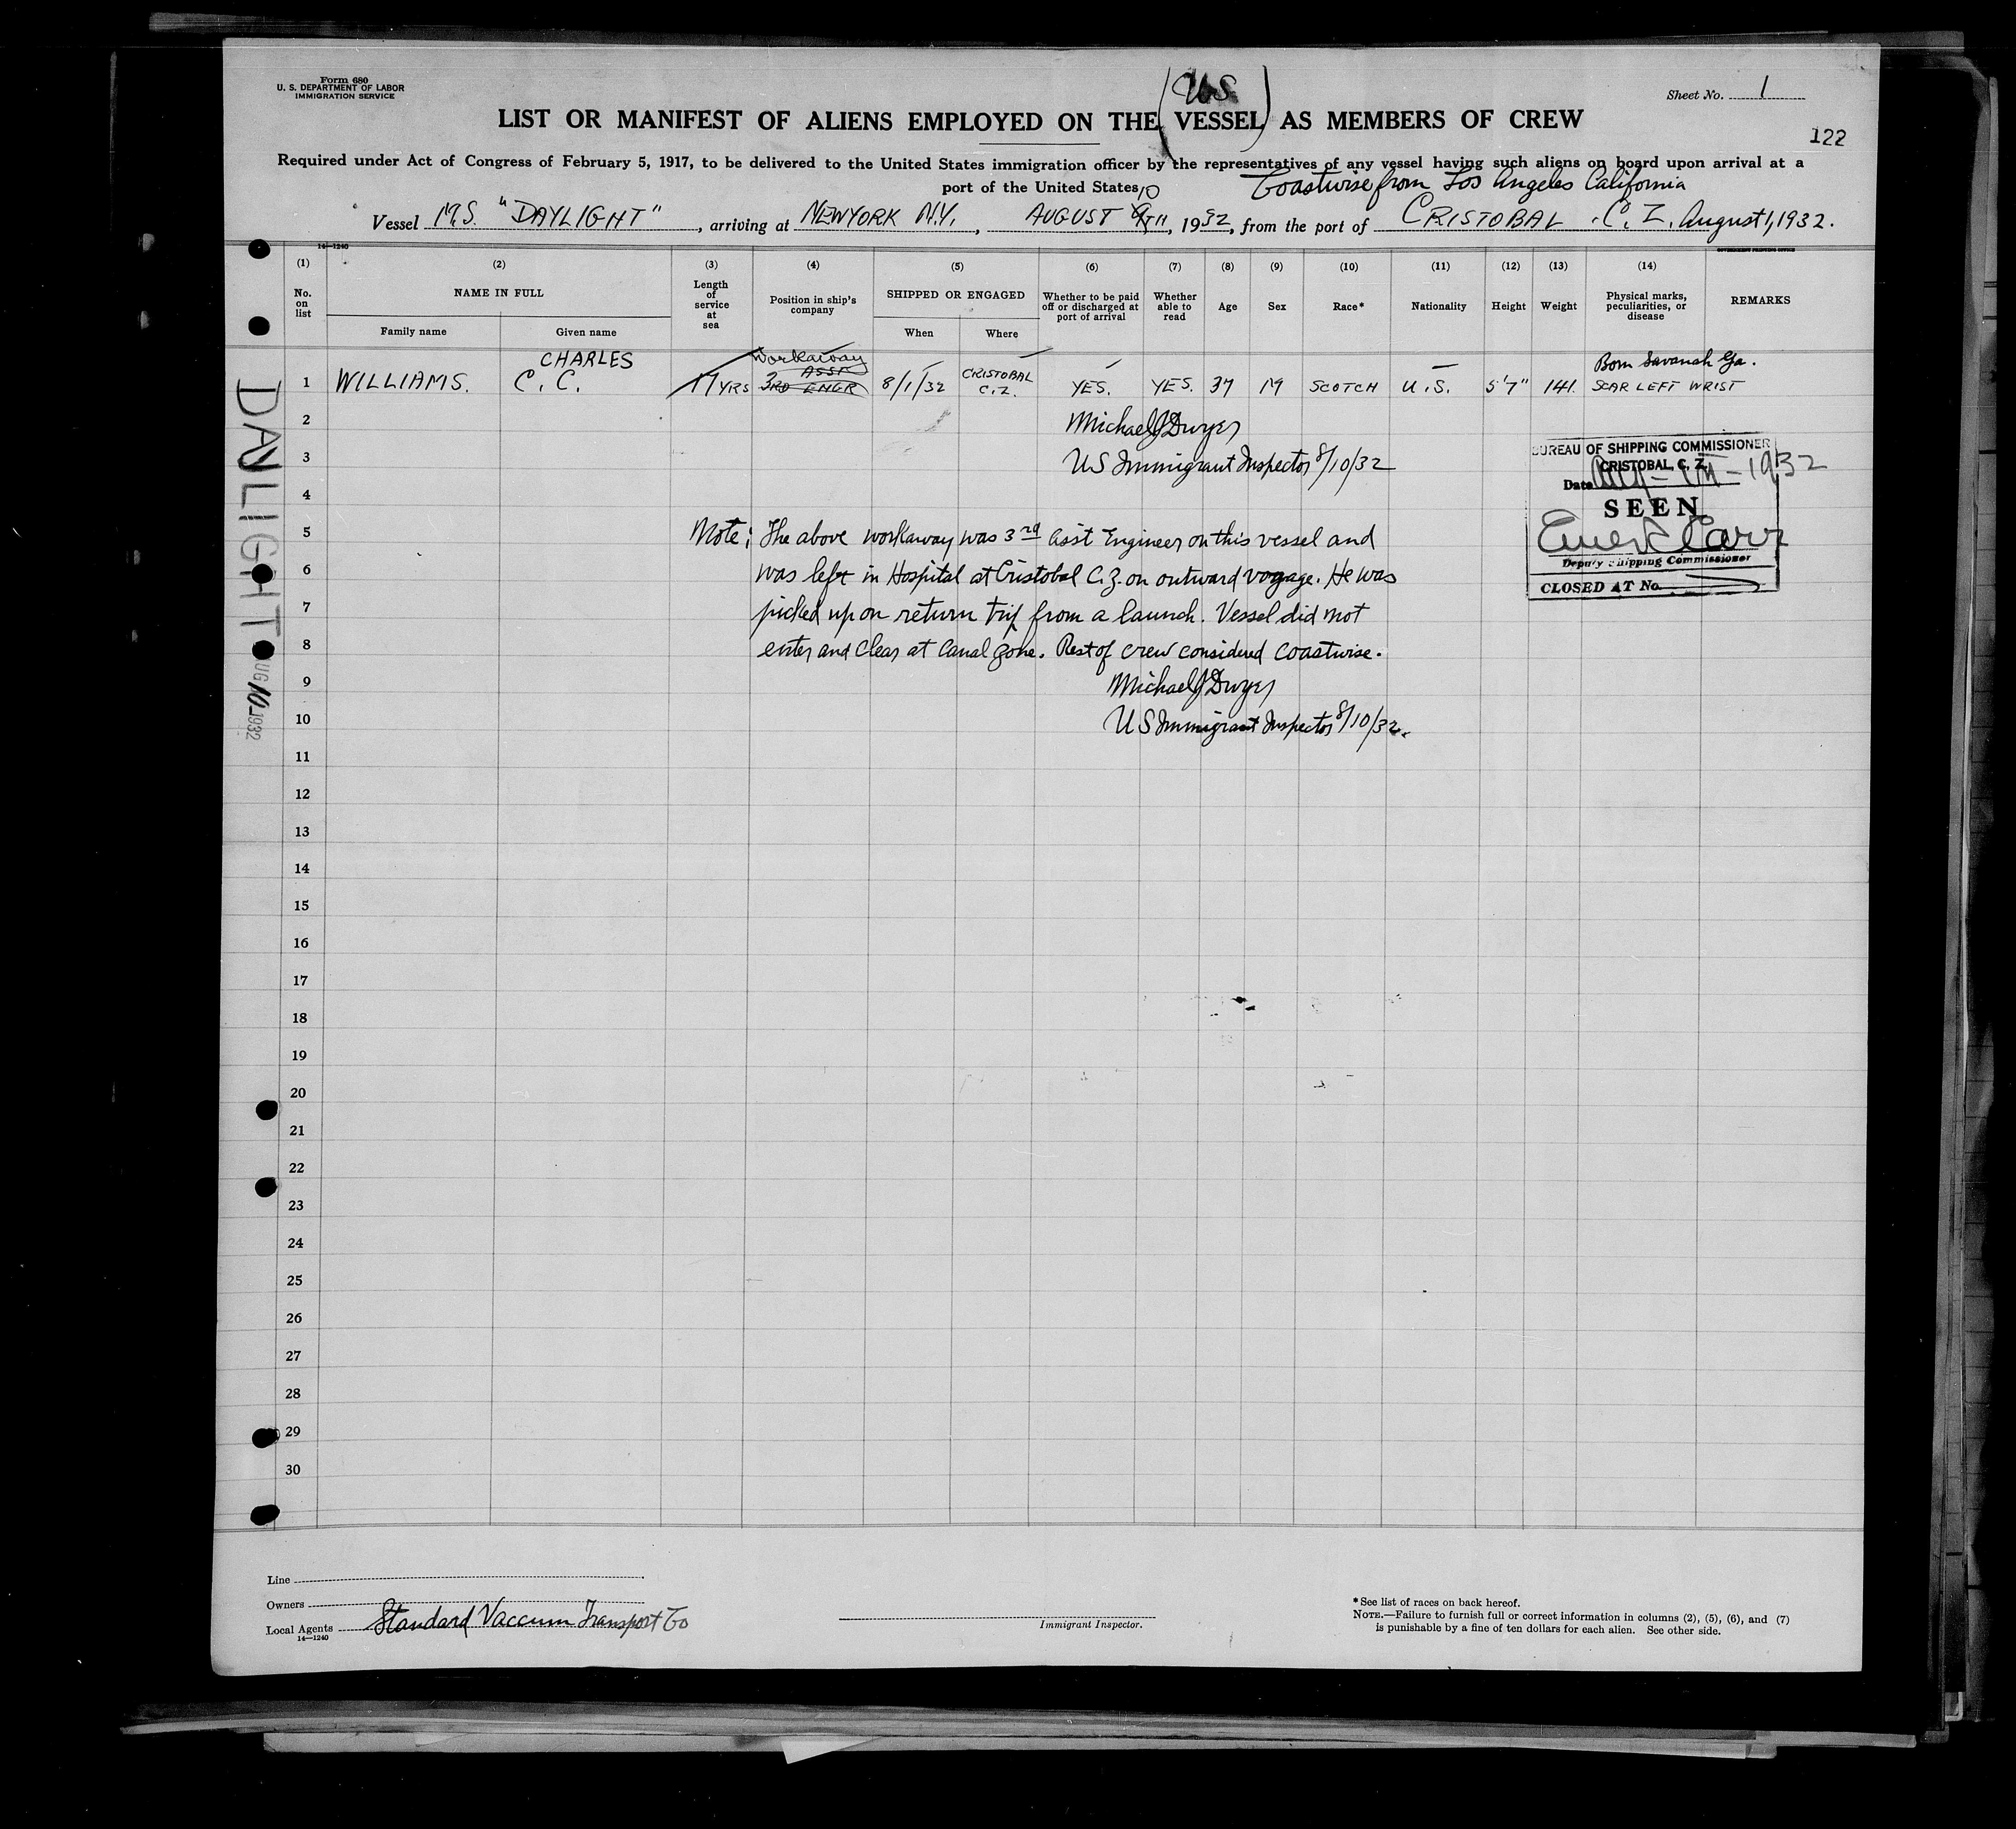 Form 680
U. S. DEPARTMENT OF LABOR
IMMIGRATION SERVICE
Sheet No. 1
(US)
LIST OR MANIFEST OF ALIENS EMPLOYED ON THE VESSEL AS MEMBERS OF CREW
122
Required under Act of Congress of February 5, 1917, to be delivered to the United States immigration officer by the representatives of any vessel having such aliens on board upon arrival at a
port of the United States
Coastwise from Los Angeles California
10
Vessel M.S. "DAYLIGHT", arriving at NEW YORK N.Y., AUGUST 9TH, 1932, from the port of CRISTOBAL. C. Z. August 1, 1932.
14—1240
GOVERNMENT PRINTING OFFICE
(1) (2) (3) (4) (5) (6) (7) (8) (9) (10) (11) (12) (13) (14)
No. on list
NAME IN FULL
Family name
Given name
Length of service at sea
Position in ship's company
SHIPPED OR ENGAGED
When
Where
Whether to be paid off or discharged at port of arrival
Whether able to read
Age
Sex
Race*
Nationality
Height
Weight
Physical marks, peculiarities, or disease
REMARKS
CHARLES workaway Born Savanah Ga.
ASST CRISTOBAL
1 WILLIAMS. C. C. 17 YRS 3RD ENGR 8/1/32 C.Z. YES. YES. 37 M SCOTCH U.S. 5'7" 141. SCAR LEFT WRIST
2 Michael J Dwyer
3 US Immigrant Inspector 8/10/32
4
BUREAU OF SHIPPING COMMISSIONER
CRISTOBAL, C. Z.
Date 1932
SEEN
Carr
Deputy Shipping Commissioner
CLOSED AT No.
5 Note; The above workaway was 3rd asst Engineer on this vessel and
6 was left in Hospital at Cristobal C.Z. on outward voyage. He was
7 picked up on return trip from a launch. Vessel did not
8 enter and clear at Canal Zone. Rest of crew considered coastwise.
9 Michael J Dwyer
10 US Immigrant Inspector 8/10/32.
11
12
13
14
15
16
17
18
19
20
21
22
23
24
25
26
27
28
29
30
DAYLIGHT
UG 10 1932
Line
Owners
Local Agents Standard Vaccum Transport Co
14—1240
Immigrant Inspector.
*See list of races on back hereof.
NOTE.—Failure to furnish full or correct information in columns (2), (5), (6), and (7)
is punishable by a fine of ten dollars for each alien. See other side.